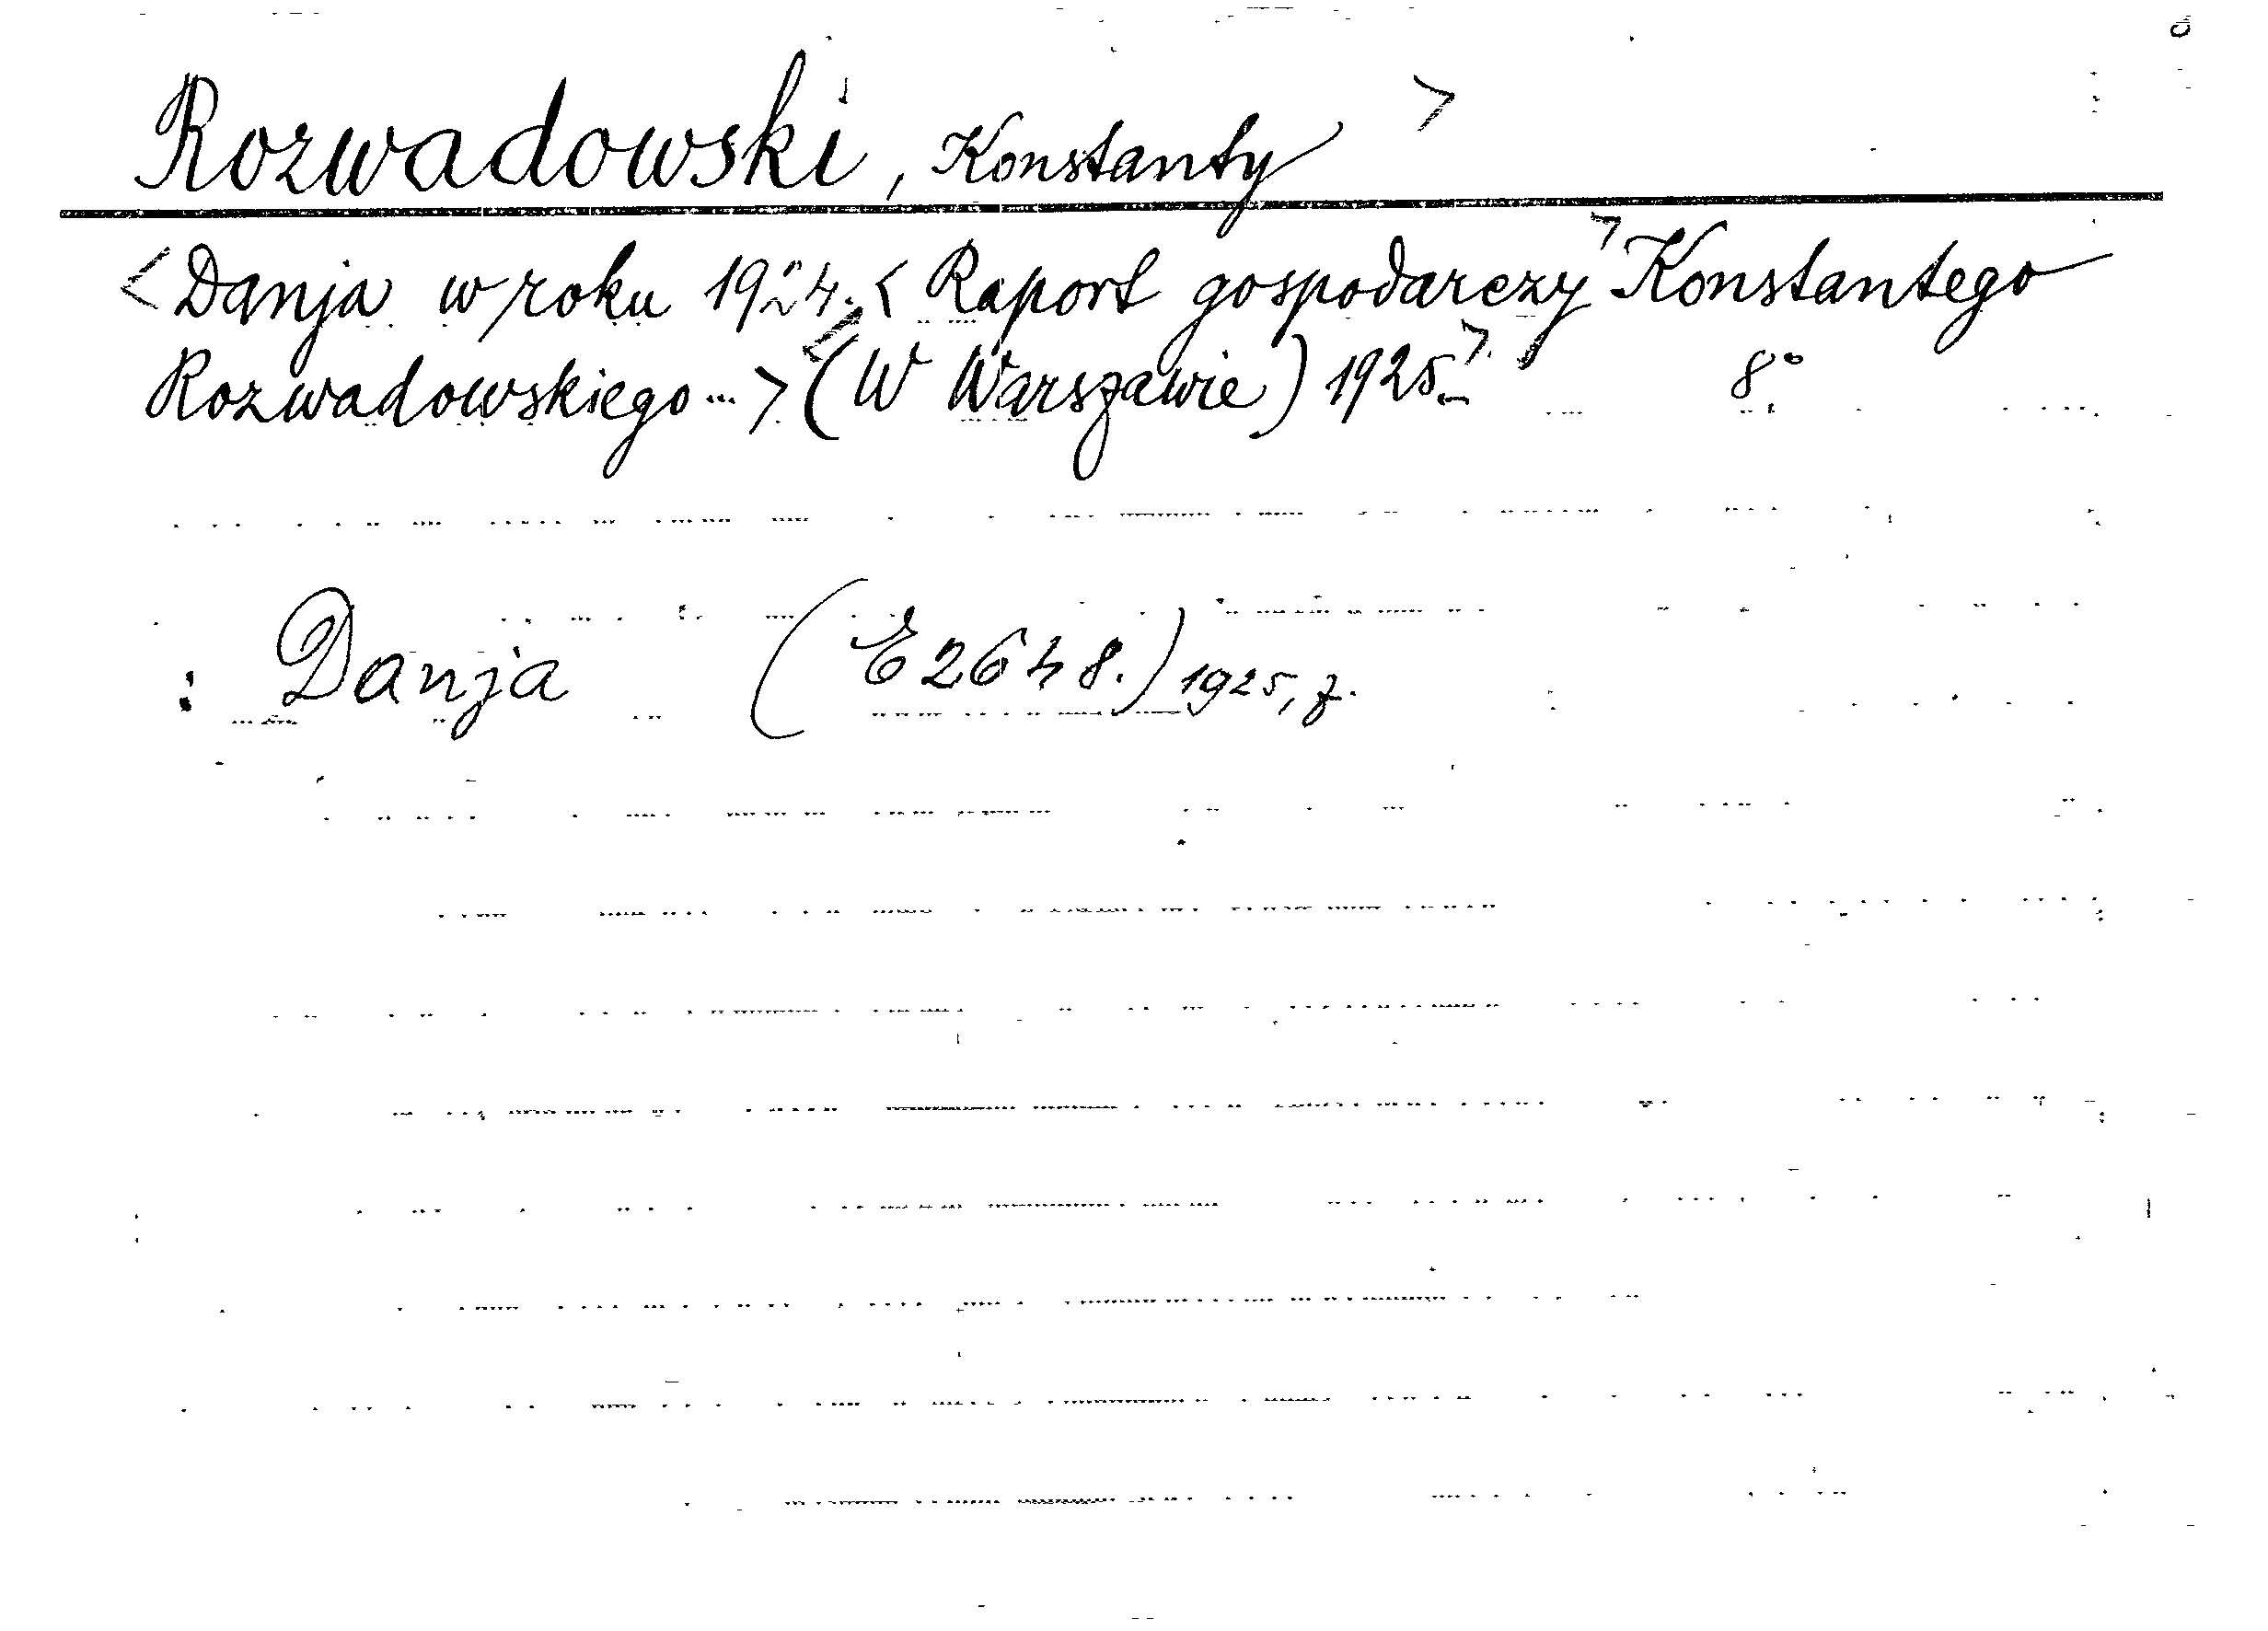 Rozwadowski, Konstanty >
< Danja w roku 1924. < Raport gospodarczy > Konstantego
Rozwadowskiego... > < (W Warszawie) 1925. > 8°
: Danja (E2648.) 1925, z.